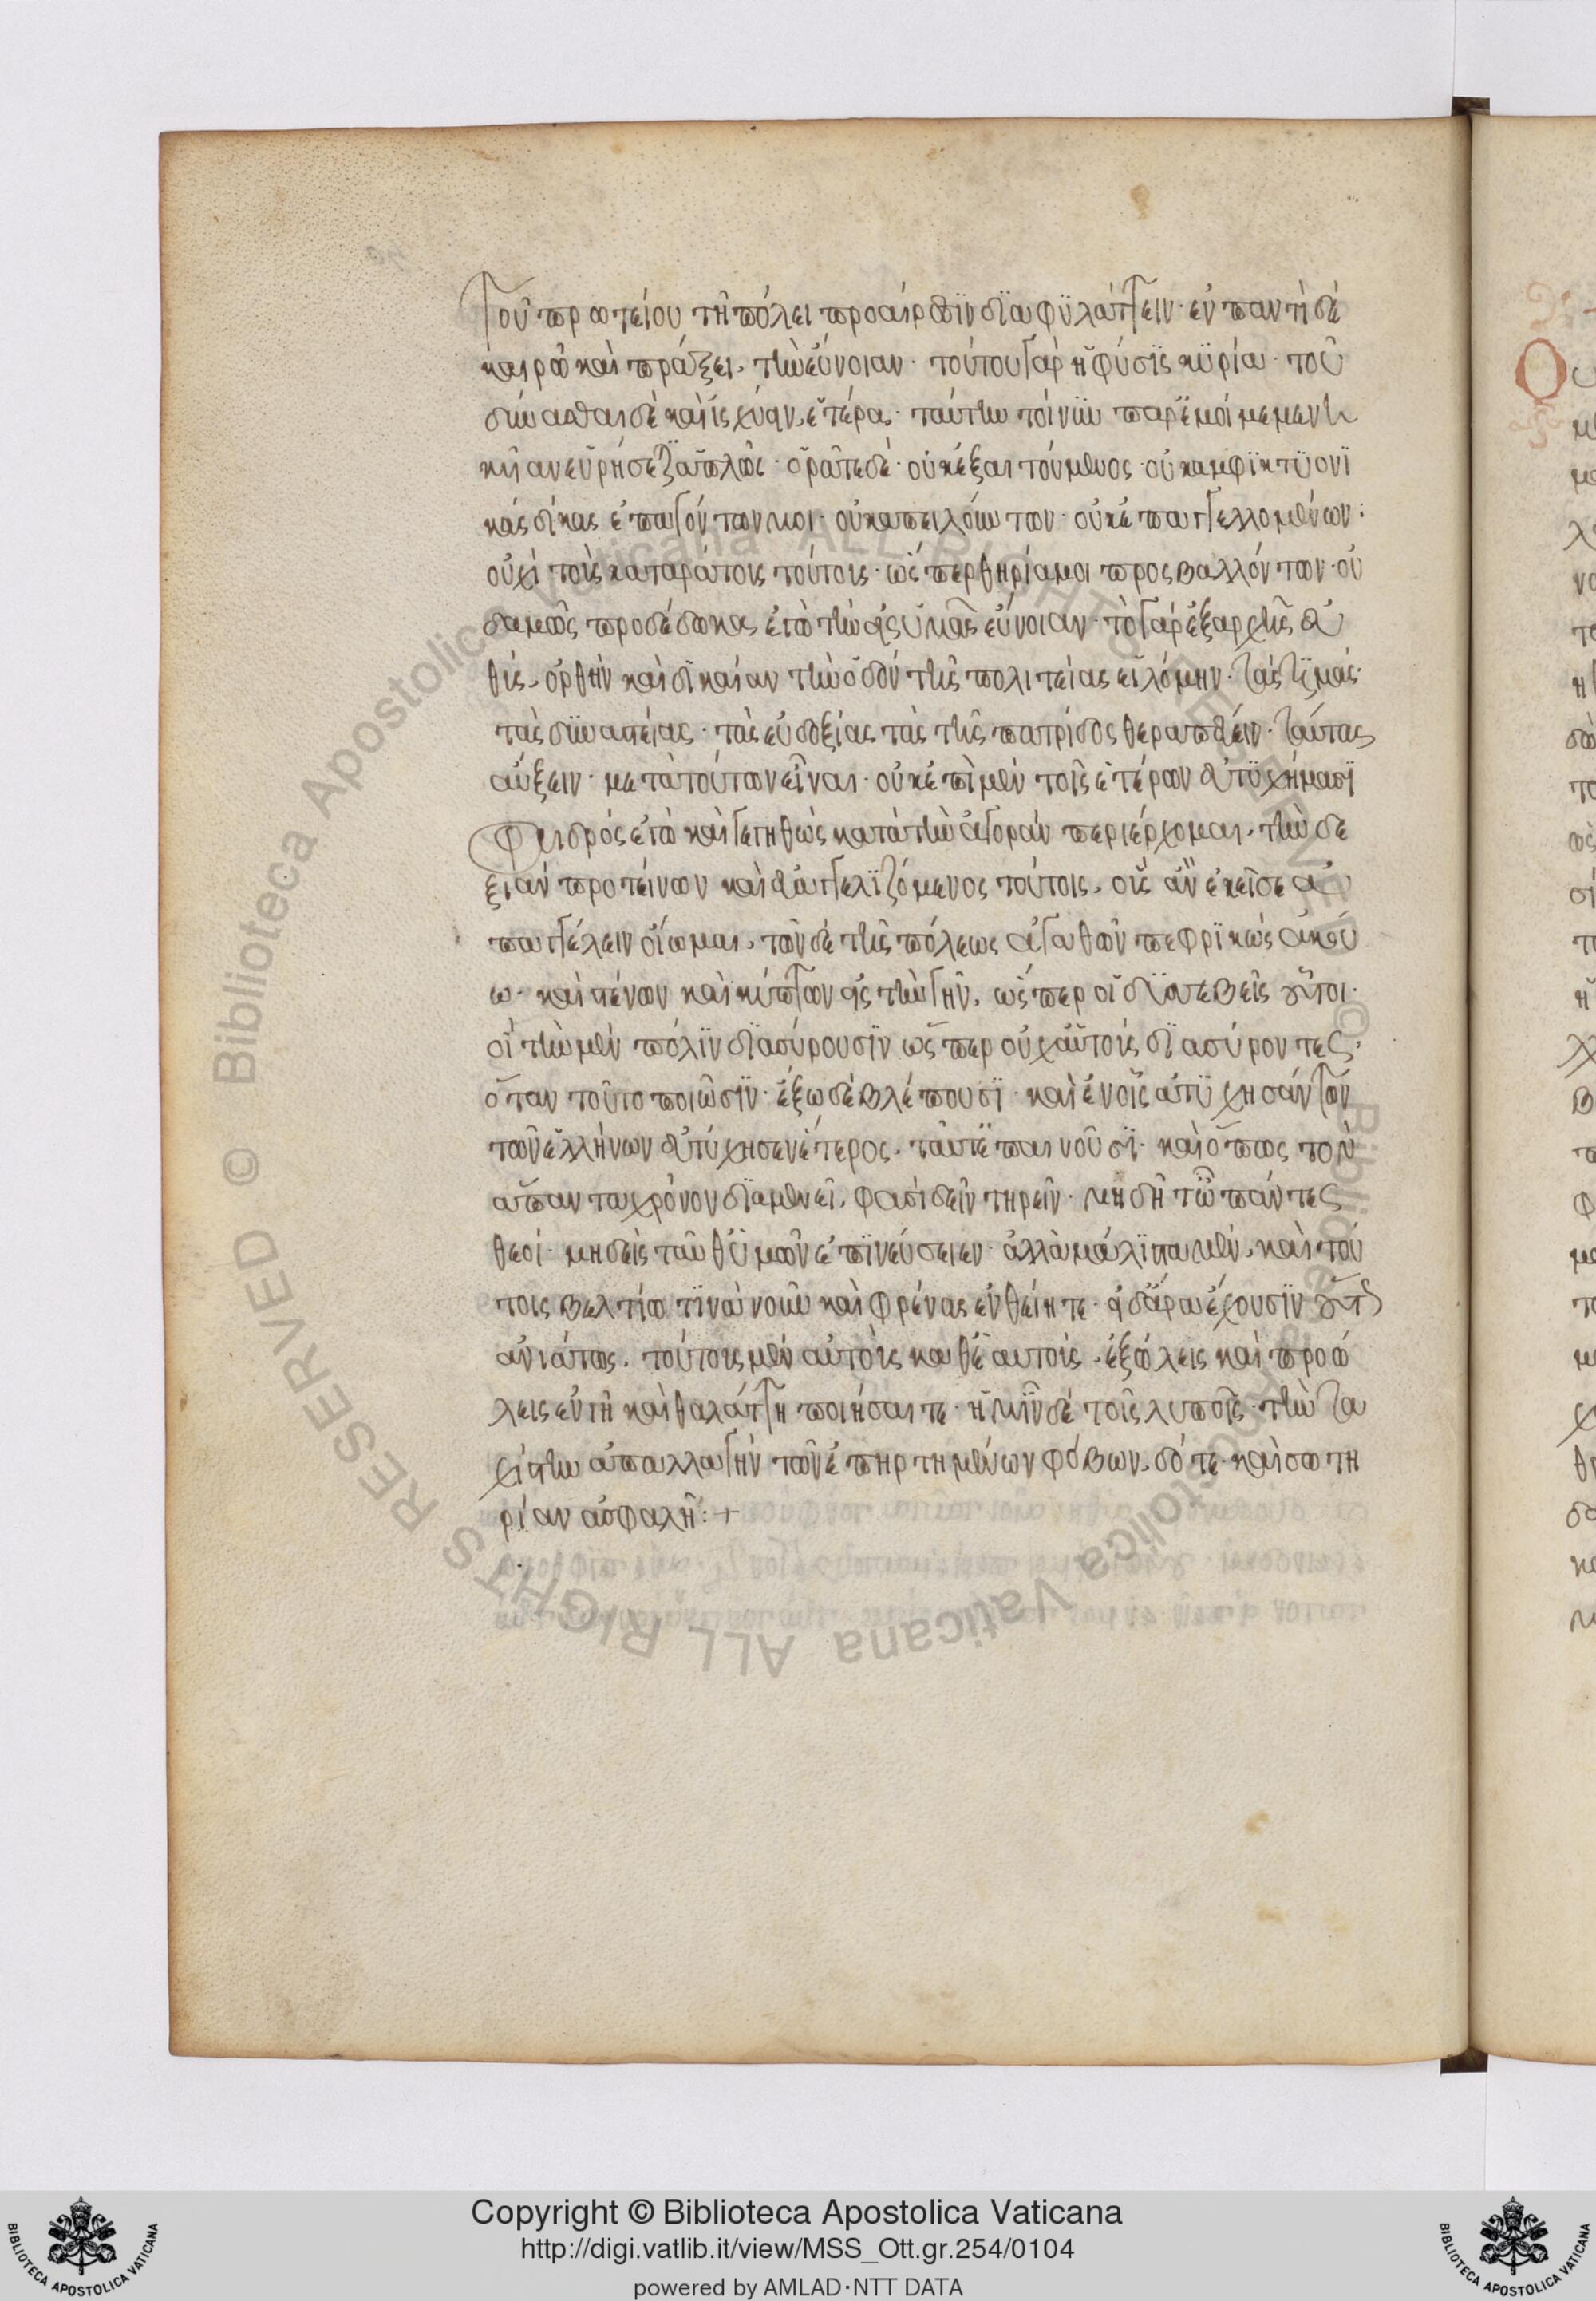 τοῦ πρωτείου τῆ πόλει προαίρεσϊν δϊαφϋλάττειν· ἐν παντὶ δὲ
καιρῶ καὶ πράξει, τὴν εὔνοιαν· τούτου γὰρ ἡ φύσϊς κϋρία· τοῦ
δύνασθαι δὲ καὶ ἰσχύειν, ἑτέρα· ταύτην τοίνυν παρ' ἐμοὶ μεμενη
κυῖαν εὑρήσετε ἁπλῶς· ὁρᾶτε δέ· οὐκ ἐξαιτούμενος· οὐκ ἀμφϊκτϋονϊ
κὰς δίκας ἐπαγόντων μοι· οὐκ ἀπειλούντων· οὐκ ἐπαγγελλομένων·
οὐχὶ τοὺς καταράτους τούτους· ὥσπερ θηρία μοι προσβαλλόντων· οὐ
δαμῶς προδέδωκα ἐγὼ τὴν εἰς ὑμᾶς εὔνοιαν· τὸ γὰρ ἐξαρχῆς εὐ
θὺς, ὀρθὴν καὶ δϊκαίαν τὴν ὁδὸν τῆς πολιτείας εἱλόμην· τὰς τϊμάς·
τὰς δυναστείας· τὰς εὐδοξίας τὰς τῆς πατρίδος θεραπεύειν· ταύτας
αὔξειν· μετὰ τούτων εἶναι· οὐκ ἐπὶ μὲν τοῖς ἑτέρων εὐτϋχήμασϊ
Φαιδρὸς ἐγὼ καὶ γεγηθὼς κατὰ τὴν ἀγορὰν περιέρχομαι, τὴν δε
ξιὰν προτείνων καὶ εὐαγγελϊζόμενος τούτοις, οὓς ἂν ἐκεῖσε ἀ
παγγέλειν οἴωμαι, τῶν δὲ τῆς πόλεως ἀγαθῶν πεφρϊκὼς ἀκού
ω· καὶ στένων καὶ κύπτων εἰς τὴν γῆν, ὥσπερ οἱ δϋσσεβεῖς οὗτοι·
οἳ τὴν μὲν πόλϊν δϊασύρουσϊν ὥσπερ οὐχ αὑτοὺς δϊασύροντες,
ὅταν τοῦτο ποιῶσϊν· ἔξω δὲ βλέπουσϊ· καὶ ἐν οἷς ἀτϋχησάντων
τῶν ἑλλήνων εὐτύχησεν ἕτερος, ταῦτ' ἐπαινοῦσϊ· καὶ ὅπως τὸν
ἅπαντα χρόνον δϊαμενεῖ, φασὶ δεῖν τηρεῖν· μὴ δῆτ' ὦ πάντες
θεοί· μηδεὶς ταῦθ' ὑμῶν ἐπϊνεύσειεν· ἀλλὰ μάλϊστα μὲν, καὶ τού
τοις βελτίω τϊνὰ νοῦν καὶ φρένας ἐνθείητε· εἰ δ' ἄρα ἔχουσϊν οὗτοι
ἀνιάτως, τούτους μὲν αὐτοὺς καθ' ἑαυτοὺς, ἐξώλεις καὶ προώ
λεις ἐν γῆ καὶ θαλάττη ποιήσαιτε· ἡμῖν δὲ τοῖς λοιποῖς· τὴν τα
χίστην ἀπαλλαγὴν τῶν ἐπηρτημένων φόβων, δότε· καὶ σωτη
ρίαν ἀσφαλῆ:+
Copyright © Biblioteca Apostolica Vaticana
http://digi.vatlib.it/view/MSS_Ott.gr.254/0104
powered by AMLAD·NTT DATA